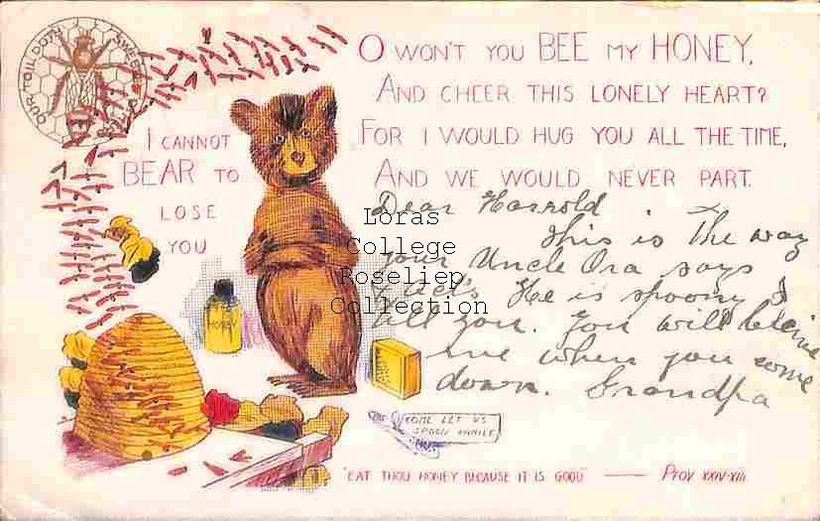 OUR TOIL DOTH SWEETEN
O WON'T YOU BEE MY HONEY,
AND CHEER THIS LONELY HEART?
FOR I WOULD HUG YOU ALL THE TIME,
AND WE WOULD NEVER PART.
I CANNOT
BEAR TO
LOSE
YOU
HONEY
Dear Harrold
This is The way
your Uncle Ora says
& acts He is spoony I
tell you. You will believe
me when you come
down. Grandpa
COME LET US
SPOON AWHILE
"EAT THOU HONEY BECAUSE IT IS GOOD" — PROV XXIV-XIII
Loras
College
Roseliep
Collection